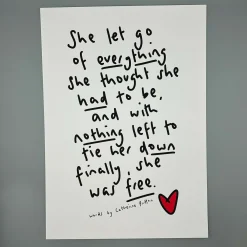 She let go
of everything
she thought she
had to be,
and with
nothing left to
tie her down
finally, she
was free.
words by Catherine